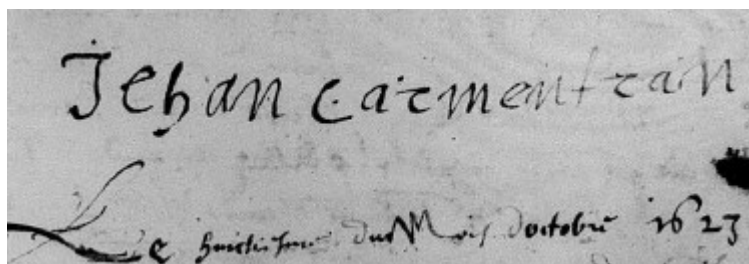 Jehan Carmentran
Le huictiesme du Mois doctobre 1623